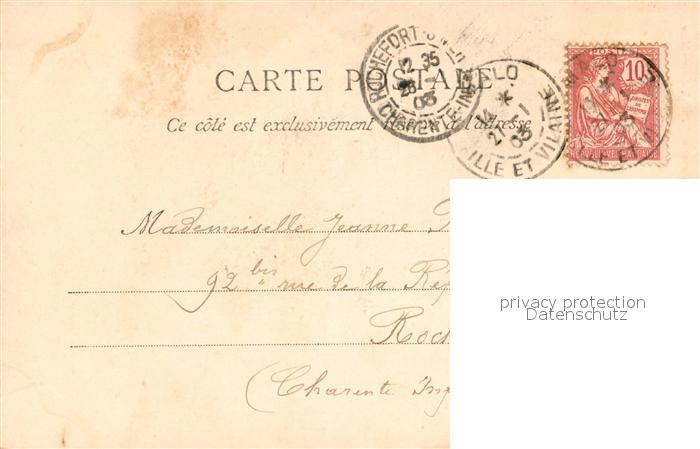 CARTE POSTALE
Ce côté est exclusivement réservé à l'adresse
ROCHEFORT-S-MER
12 35
26
03
CHARENTE-INF
ELO
21
03
ILLE ET VILAINE
POSTES
10
DROITS DE L'HOMME
REPUBLIQUE FRANCAISE
Mademoiselle Jeanne
92 bis rue de la Rép
Roch
(Charente Inf
privacy protection
Datenschutz